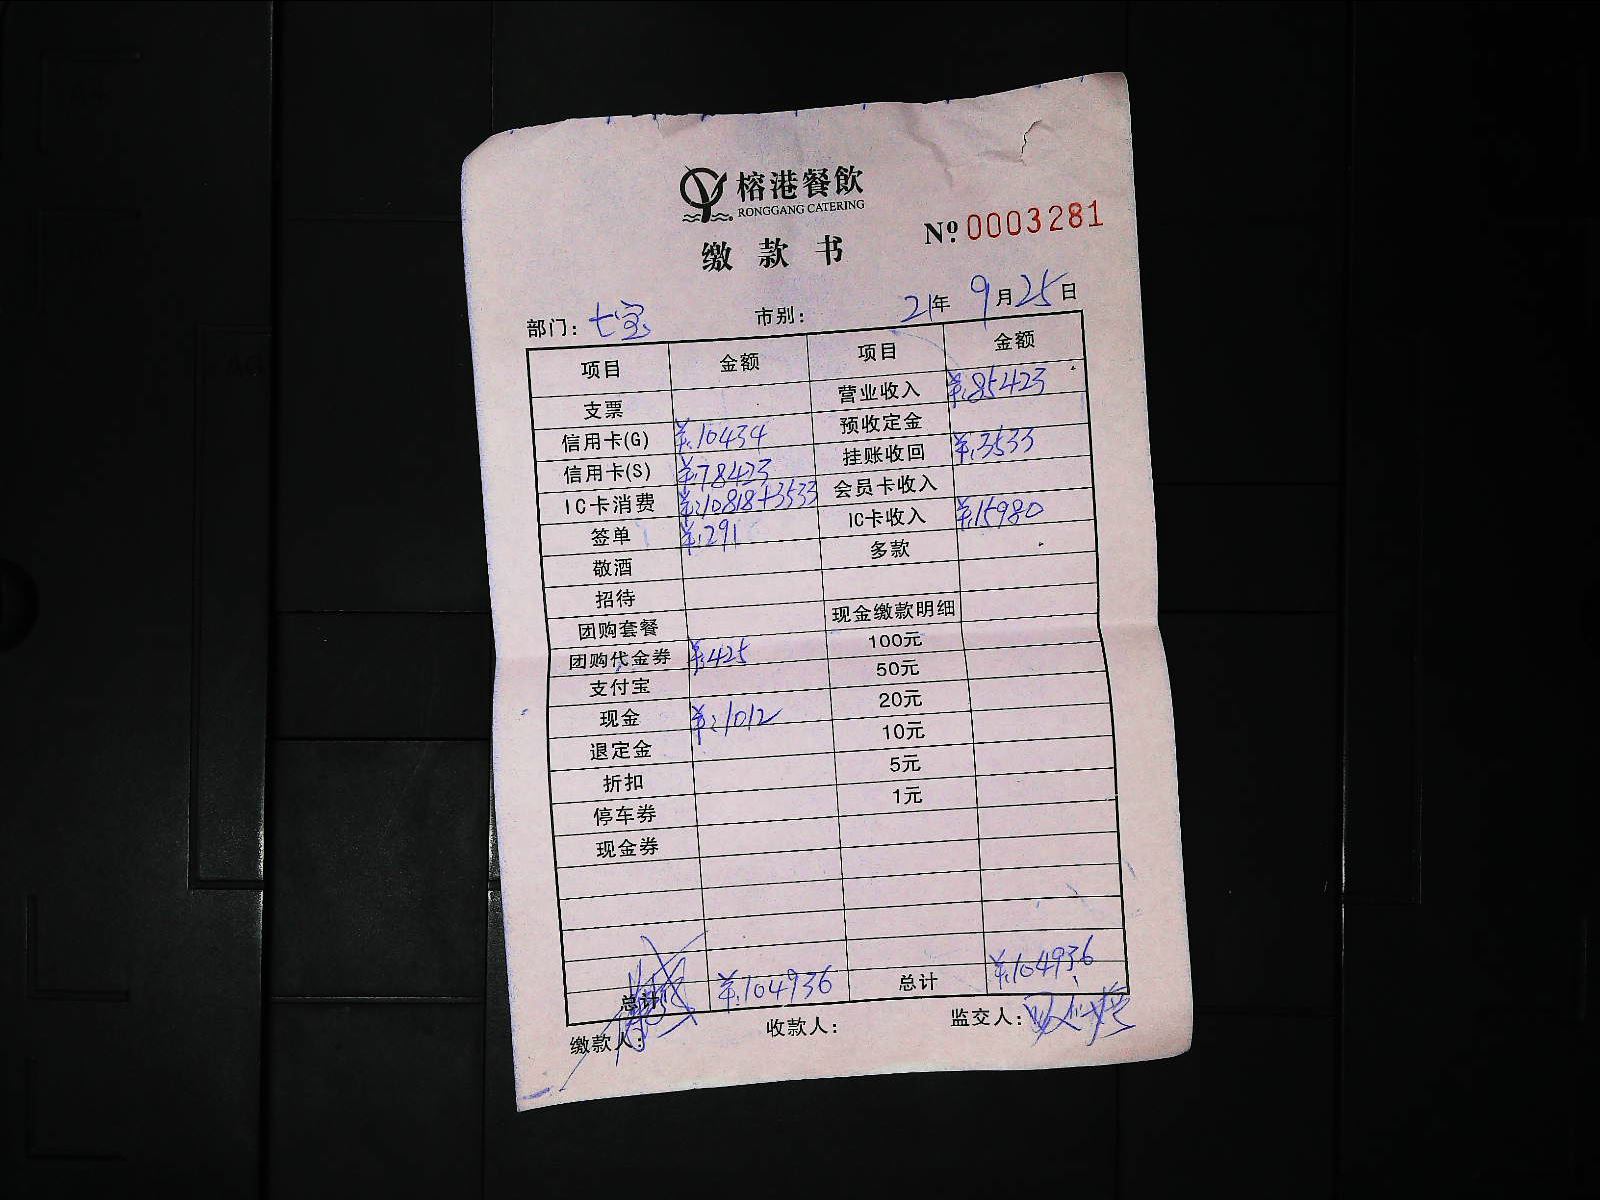 榕港餐飲
RONGGANG CATERING
缴款书
Nº 0003281
部门：七宝 市别： 21年 9月25日
项目 金额 项目 金额
支票 营业收入 ¥:85423
信用卡(G) ¥:10434 预收定金
信用卡(S) ¥:78423 挂账收回 ¥:3533
IC卡消费 ¥:10818+3533 会员卡收入
签单 ¥:291 IC卡收入 ¥:15980
敬酒 多款
招待
团购套餐 现金缴款明细
团购代金券 ¥:425 100元
支付宝 50元
现金 ¥:1012 20元
退定金 10元
折扣 5元
停车券 1元
现金券
总计 ¥:104936 总计 ¥:104936
缴款人： 收款人： 监交人：